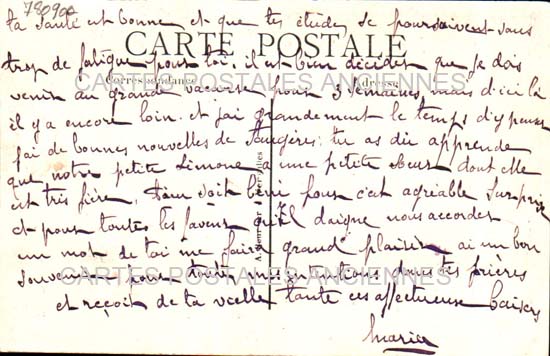 780900
ta santé est bonne et que tes études se poursuivent sans
CARTE POSTALE
trop de fatigue pour toi. il est bien décidé que je dois
CARTES POSTALES ANCIENNES
Correspondance
Adresse
venir au grandes vacances pour 3 semaines, mais d'ici là
il y a encore loin et j'ai grandement le temps d'y penser
j'ai de bonnes nouvelles de : tu as dû apprendre
que notre petite Simone a une petite sœur dont elle
est très fière, soit béni pour cet agréable surprise
et pour toutes les faveurs qu'Il daigne nous accorder
un mot de toi me faire grand plaisir ai un bon
CARTES POSTALES ANCIENNES
souvenir pour toutes mes intentions dans tes prières
et reçoit de ta vieille tante ces affectueux baisers
Maria